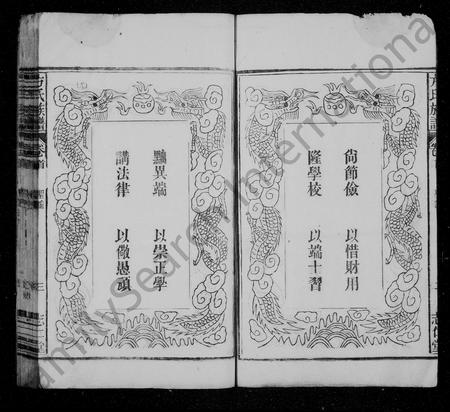 尙節儉 以惜財用
隆學校 以端士習
黜異端 以崇正學
講法律 以儆愚頑
FamilySearch International